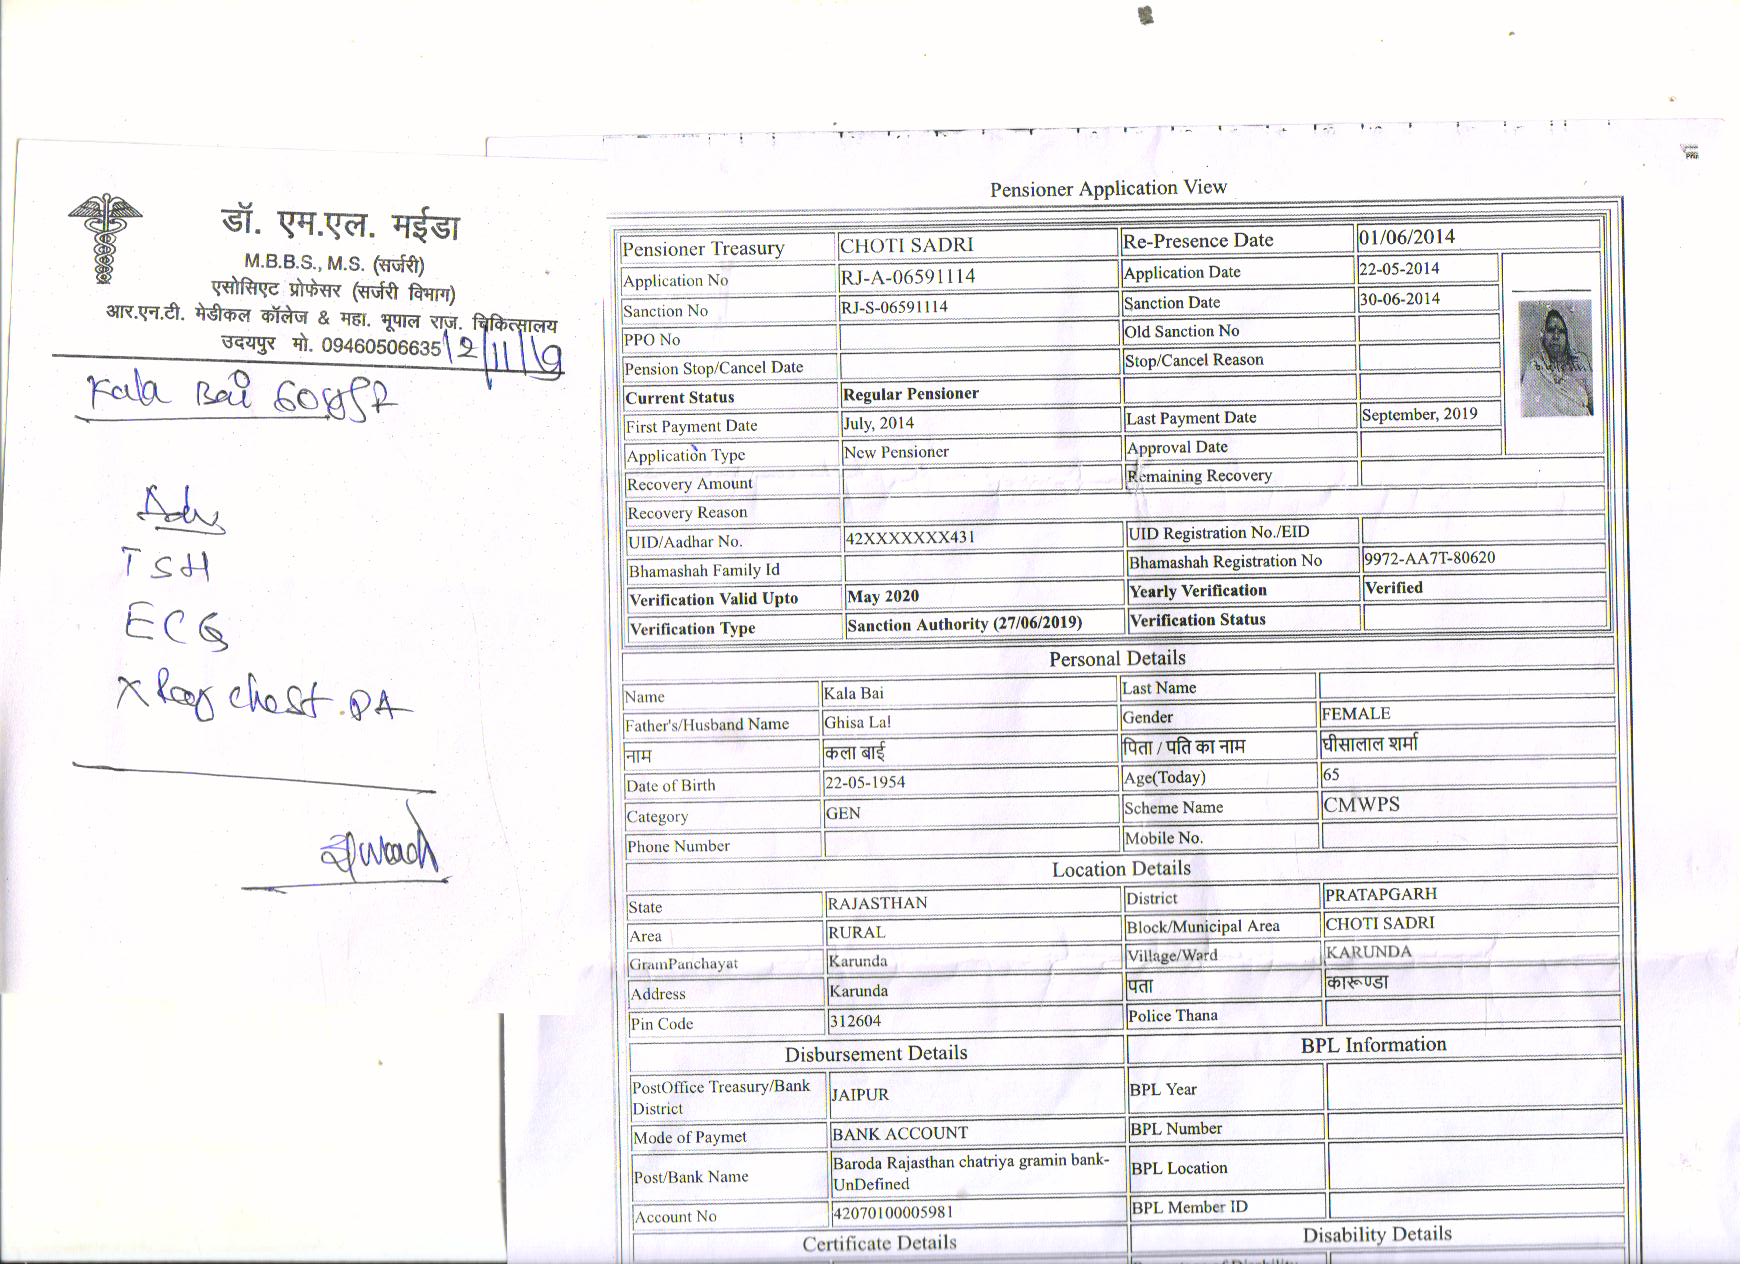 डॉ. एम.एल. मईडा
M.B.B.S., M.S. (सर्जरी)
एसोसिएट प्रोफेसर (सर्जरी विभाग)
आर.एन.टी. मेडीकल कॉलेज & महा. भूपाल राज. चिकित्सालय
उदयपुर मो. 09460506635 12/11/19
Kala Bai 60
Adv
TSH
ECG
X Ray chest. PA
Pensioner Application View
Pensioner Treasury CHOTI SADRI Re-Presence Date 01/06/2014
Application No RJ-A-06591114 Application Date 22-05-2014
Sanction No RJ-S-06591114 Sanction Date 30-06-2014
PPO No Old Sanction No
Pension Stop/Cancel Date Stop/Cancel Reason
Current Status Regular Pensioner
First Payment Date July, 2014 Last Payment Date September, 2019
Application Type New Pensioner Approval Date
Recovery Amount Remaining Recovery
Recovery Reason
UID/Aadhar No. 42XXXXXXX431 UID Registration No./EID
Bhamashah Family Id Bhamashah Registration No 9972-AA7T-80620
Verification Valid Upto May 2020 Yearly Verification Verified
Verification Type Sanction Authority (27/06/2019) Verification Status
Personal Details
Name Kala Bai Last Name
Father's/Husband Name Ghisa Lal Gender FEMALE
नाम कला बाई पिता / पति का नाम घीसालाल शर्मा
Date of Birth 22-05-1954 Age(Today) 65
Category GEN Scheme Name CMWPS
Phone Number Mobile No.
Location Details
State RAJASTHAN District PRATAPGARH
Area RURAL Block/Municipal Area CHOTI SADRI
GramPanchayat Karunda Village/Ward KARUNDA
Address Karunda पता कारूण्डा
Pin Code 312604 Police Thana
Disbursement Details BPL Information
PostOffice Treasury/Bank District JAIPUR BPL Year
Mode of Paymet BANK ACCOUNT BPL Number
Post/Bank Name Baroda Rajasthan chatriya gramin bank-UnDefined BPL Location
Account No 42070100005981 BPL Member ID
Certificate Details Disability Details